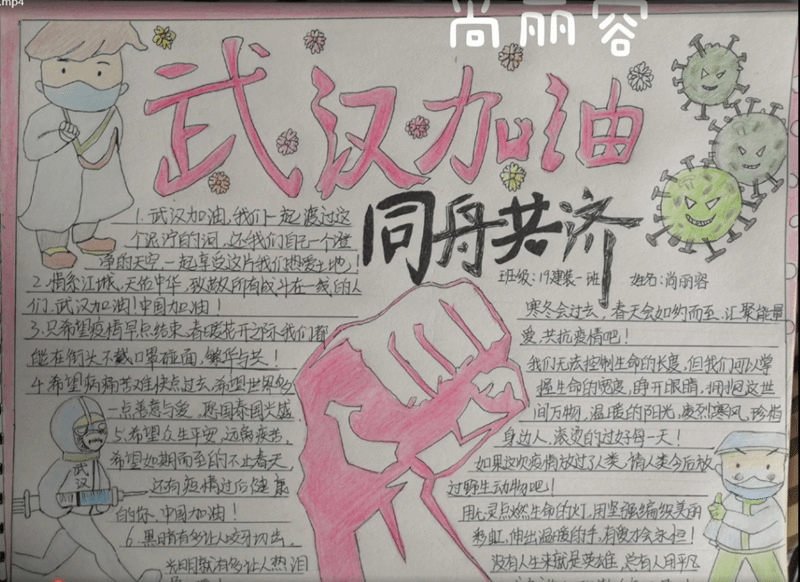 .mp4
尚丽容
武汉加油
同舟共济
班级:19建装一班 姓名:尚丽容
1. 武汉加油,我们一起渡过这
个泥泞的河,还我们自己一个澄
净的天空,一起享受这片我们热爱土地!
2. 情系江城,天佑中华,致敬所有战斗在一线的人
们,武汉加油!中国加油!
3. 只希望疫情早点结束,春暖花开之际我们都
能在街头不戴口罩碰面,繁华与共!
4. 希望病痛苦难快点过去,希望世界多
一点善意与爱,愿国泰国兴盛
5. 希望众生平安,远离疾苦,
希望如期而至的不止春天,
还有疫情过后健康
的你,中国加油!
6. 黑暗有多让人咬牙切齿,
光明就有多让人热泪
武汉
寒冬会过去,春天会如约而至,汇聚能量
爱,共抗疫情吧!
我们无法控制生命的长度,但我们可以掌
握生命的宽度,睁开眼睛,拥抱这世
间万物,温暖的阳光,凛冽寒风,珍惜
身边人,滚烫的过好每一天!
如果这次疫情放过了人类,请人类今后放
过野生动物吧!
用心灵点燃生命的灯,用坚强编织美丽
彩虹,伸出温暖的手,有爱才会永恒!
没有人生来就是英雄,总有人用平凡